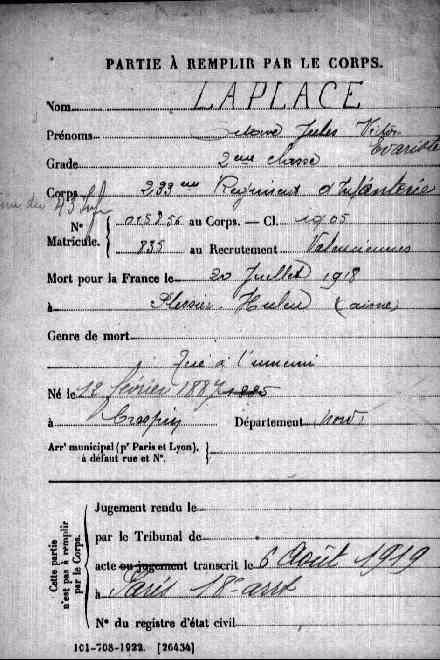 PARTIE À REMPLIR PAR LE CORPS.
Nom LAPLACE
Prénoms Jules Victor
Évariste
Grade 2eme classe
Corps 233me Régiment d'Infanterie
N° 015856 au Corps. — Cl. 1905
Matricule. 835 au Recrutement Valenciennes
Mort pour la France le 20 Juillet 1918
à Plessier-Huleu (aisne)
Genre de mort
Tué à l'ennemi
Né le 12 février 1887
à Crespin Département Nord
Arrt municipal (pr Paris et Lyon),
à défaut rue et N°.
Cette partie
n'est pas à remplir
par le Corps.
Jugement rendu le
par le Tribunal de
acte ou jugement transcrit le 6 Août 1919
à Paris 18e arrt
N° du registre d'état civil
101-708-1922. [26434]